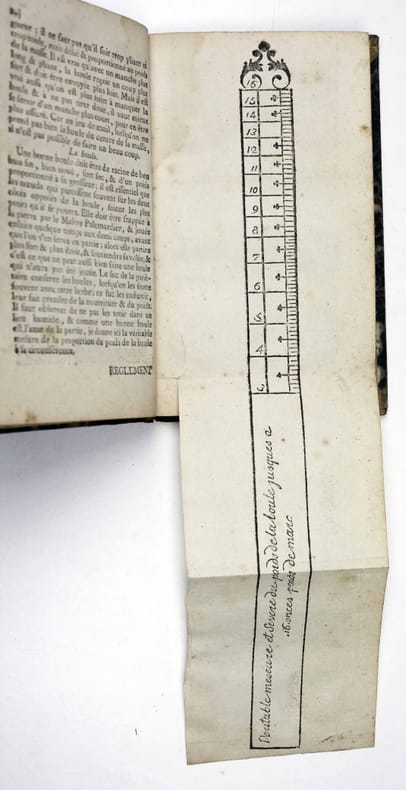 errer ; il ne faut pas qu'il soit trop pliant ni
mais délié & proportionné au poids
de la masse. Il est vrai qu'avec un manche plus
long & pliant, la boule reçoit un coup plus
sec & doit être envoyée plus loin. Mais il est
vrai aussi, qu'on est plus sujet à manquer la
boule & à ne pas tirer droit, il vaut mieux
se servir d'un manche plus court, pour en être
plus assuré. Car au jeu de mail, lorsqu'on ne
prend pas bien la boule du centre de la masse,
il n'est pas possible de faire un beau coup.
La boule.
Une bonne boule doit être de racine de bon
buis fin, bien noué, fort sec, & d'un poids
proportionné à sa grosseur; il est essentiel que
les nœuds qui paroissent souvent sur les deux
côtés opposés de la boule, soient les plus
petits qu'il se pourra. Elle doit être frappée à
la pierre par le Maître Palemardier, & jouée
encore quelque temps aux demi coups, avant
que l'on s'en serve en partie; alors elle partira
plus fin & plus droit, & soutiendra sa volée, &
c'est ce que ne peut aussi bien faire une boule
qui n'aura pas été jouée. Le sac de la peau
faire conserver les boules, lorsqu'on les
souvent avec cette herbe: ce suc les endurcit,
leur fait prendre de la nourriture & du poids.
Il faut observer de ne pas les tenir dans un
lieu humide, & comme une bonne boule
est l'ame de la partie, je donne ici la véritable
mesure de la proportion du poids de la boule
à la circonférence.
REGLEMENT
16
15
14
13
12
11
10
9
8
7
6
5
4
Veritable meseure et du poids de la boule jusques a
16 onces poids de marc